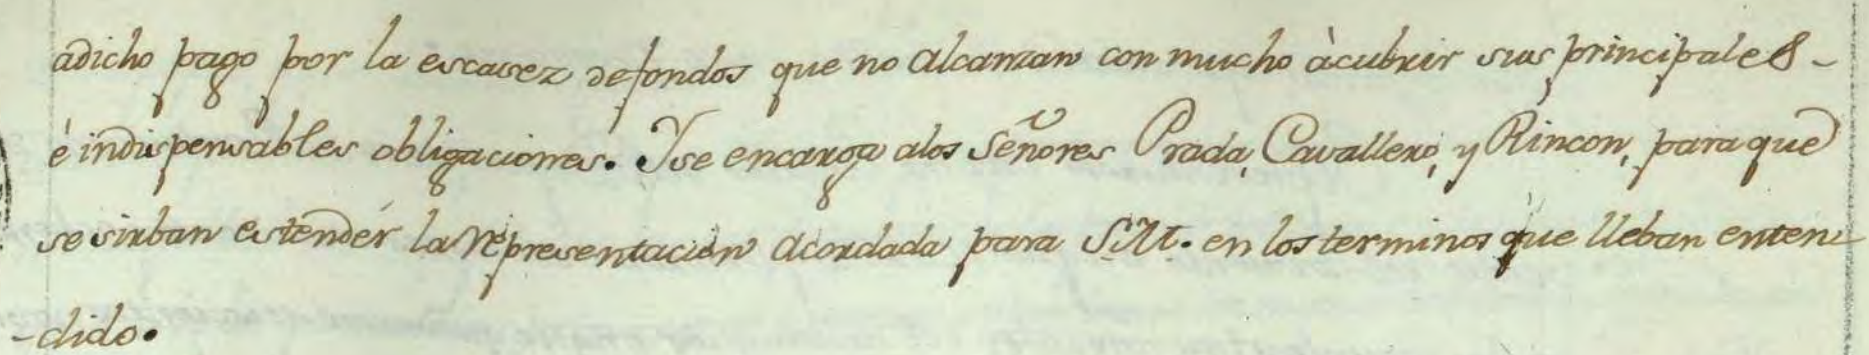 adicho pago por la escasez defondos que no alcanzan con mucho àcubrir sus principales-
è indispensables obligaciones. Yse encarga alos Señores Prada, Cavallero, y Rincon, para que
se sirban estendér la representacion acordada para S.M. en los terminos que lleban enten-
-dido.